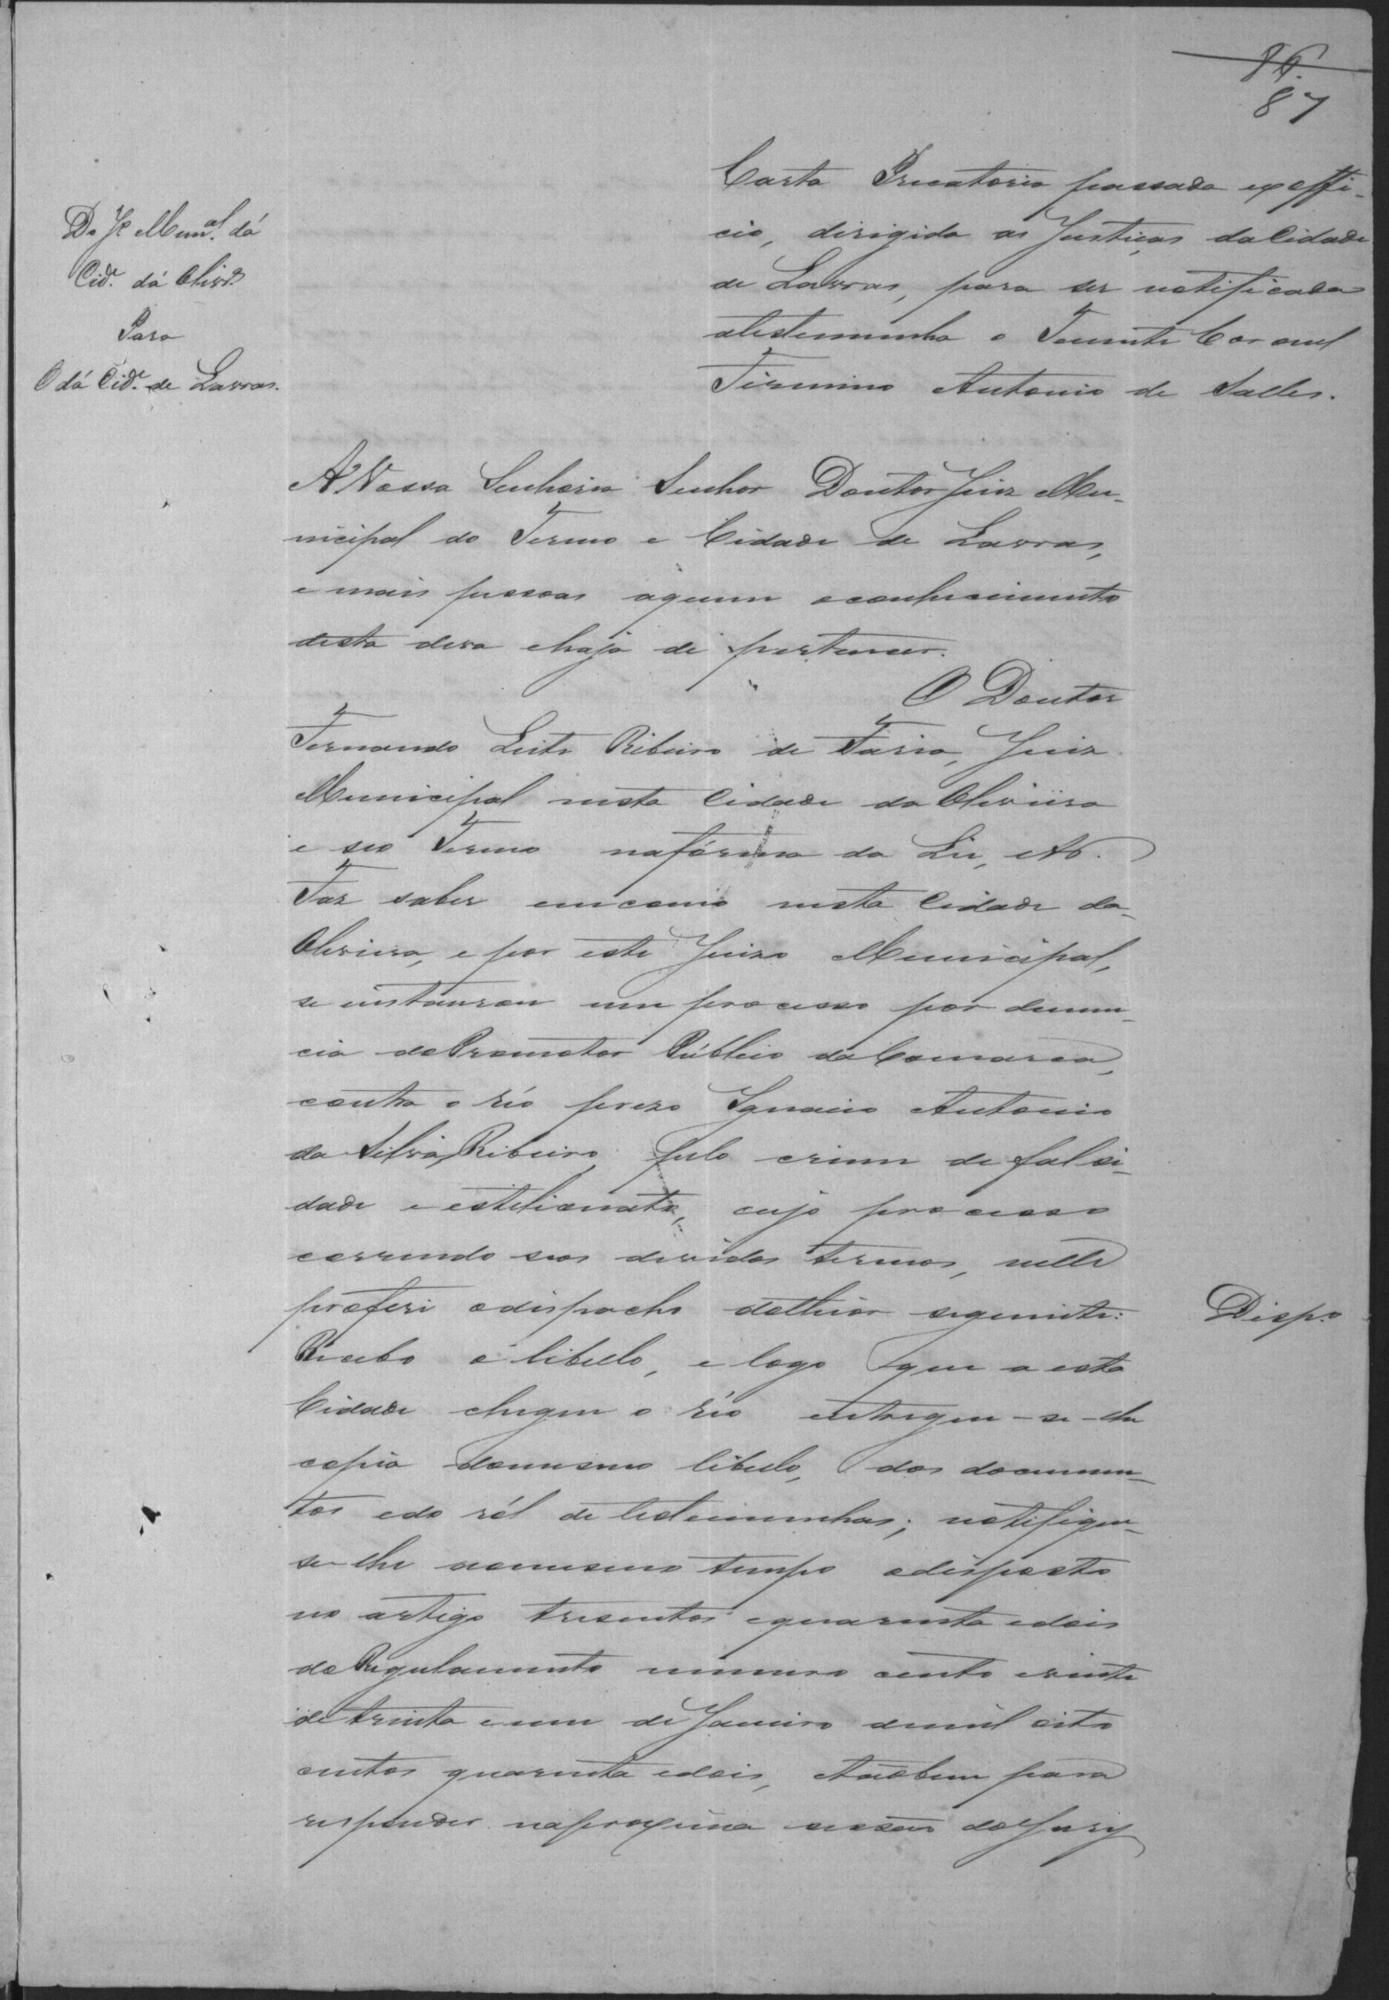 86.
87
Carta Precatoria passada exoffi-
cio, dirigida as Justiças da Cidade
de Lavras, para ser notificada
atestemunha o Tenente Coronel
Firmino Antonio de Salles.
Do Jº Munal. dá
Cide. dá Olivrª
Para
O dá Cide. de Lavras.
A' Vossa Senhoria Senhor Doutor Juiz Mu-
nicipal do Termo e Cidade de Lavras,
e mais pessoas áquem oconhecimento
desta deva ehaja de pertencer.
O Doutor
Fernando Leite Ribeiro de Faria, Juiz
Municipal nesta Cidade da Oliveira
e seo Termo nafórma da Lei, etc.
Faz saber emcomo nesta Cidade da
Oliveira, e por este Juizo Municipal,
se instaurou um processo por denun-
cia doPromotor Público da Comarca,
contra o réo prezo Ignacio Antonio
da Silva Ribeiro pelo crime de falsi-
dade e estelionato, cujo processo
correndo seos devidos termos, nelle
proferi odispacho dotheor seguinte:
Dispº
Recebo o libello, e logo que a esta
Cidade chegue o réo entregue-se-lhe
copia domesmo libello, dos documen-
tos edo ról de testemunhas; notifique-
se-lhe aomesmo tempo odisposto
no artigo tresentos equarenta edois
doRegulamento numero cento evinte
de trinta e um de Janeiro demil oito
centos quarenta edois, etãobem para
responder naproxima sessão doJury